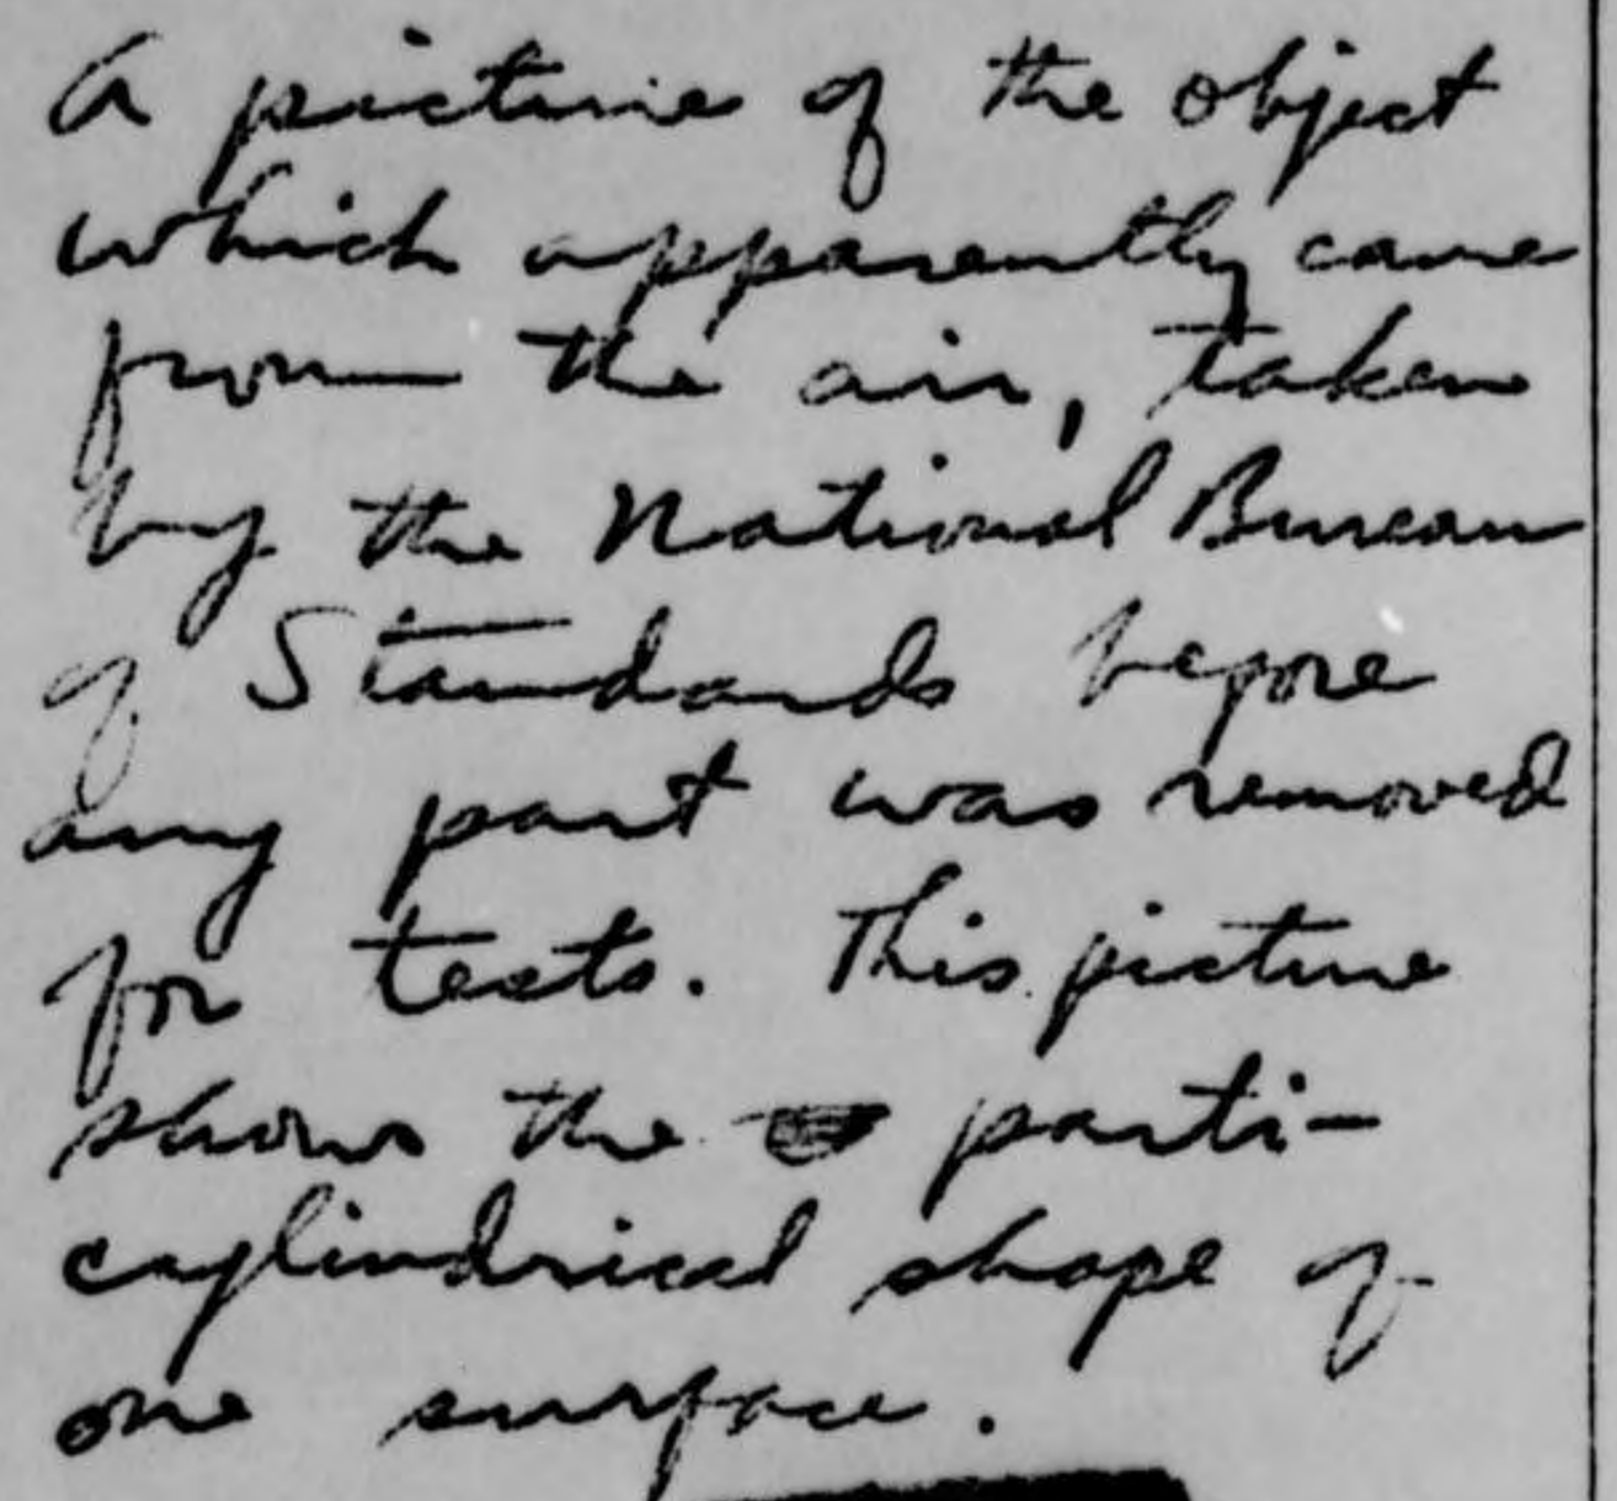 A picture of the object
which apparently came
from the air, taken
by the National Bureau
of Standards before
any part was removed
for tests. This picture
shows the parti-
cylindrical shape of
one surface.